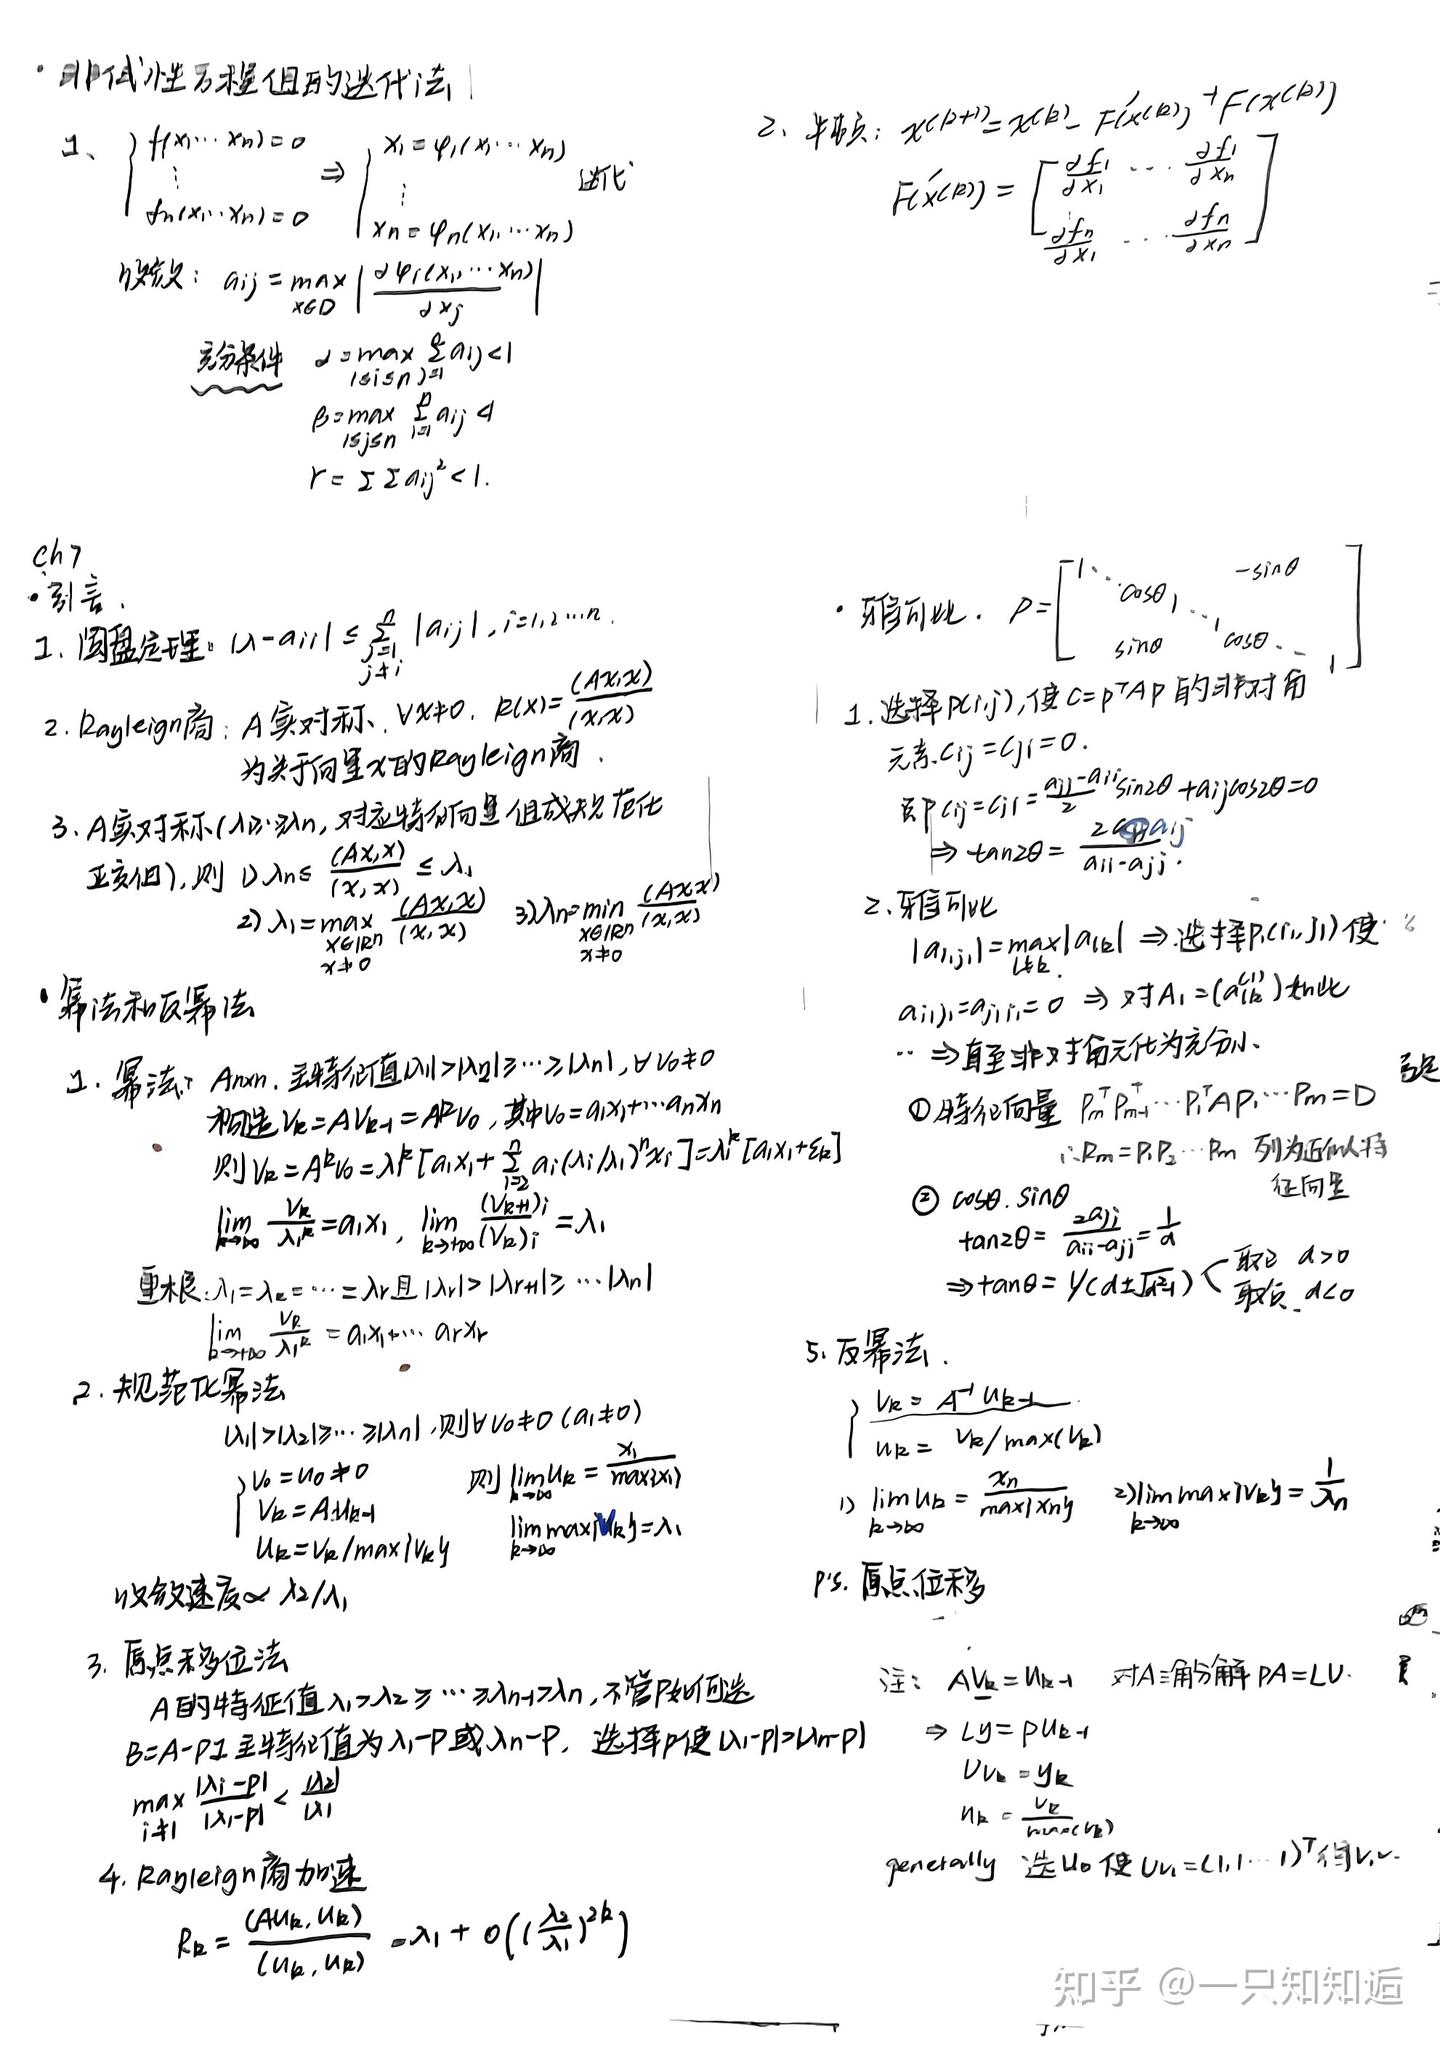 · 非线性方程组的迭代法
1、 { f(x₁…xₙ)=0 ⋮ fₙ(x₁…xₙ)=0 ⇒ { x₁=φ₁(x₁…xₙ) ⋮ xₙ=φₙ(x₁,…xₙ) 迭代
收敛: aij = max x∈D |∂φi(x₁,…xₙ)/∂xj|
充分条件 α=max 1≤i≤n Σ j=1 aij<1
β=max 1≤j≤n Σ i=1 n aij<1
r=ΣΣaij²<1.
2、牛顿: x^(k+1)=x^(k)-F'(x^(k))⁻¹F(x^(k))
F'(x^(k)) = [∂f₁/∂x₁ … ∂f₁/∂xₙ ⋮ ∂fₙ/∂x₁ … ∂fₙ/∂xₙ]
Ch7
· 引言.
1. 圆盘定理: |λ-aii| ≤ Σ j=1 j≠i n |aij|, i=1,2…n.
2. Rayleign商: A实对称、∀x≠0. R(x)=(Ax,x)/(x,x)
为关于向量x的Rayleign商.
3. A实对称(λ₁≥…≥λn, 对应特征向量组成规范化
正交组), 则 1) λn≤(Ax,x)/(x,x)≤λ₁
2) λ₁=max x∈Rⁿ x≠0 (Ax,x)/(x,x) 3) λn=min x∈Rⁿ x≠0 (Ax,x)/(x,x)
· 幂法和反幂法
1. 幂法: An×n. 主特征值|λ₁|>|λ₂|≥…≥|λn|, ∀v₀≠0
构造Vk=AVk-1=A^k v₀, 其中v₀=a₁x₁+…anxn
则Vk=A^k v₀=λ₁^k[a₁x₁+Σ i=2 n ai(λi/λ₁)ⁿxi]=λ₁^k[a₁x₁+εk]
lim k→∞ Vk/λ₁^k=a₁x₁, lim k→+∞ (Vk+1)i/(Vk)i=λ₁
重根: λ₁=λ₂=…=λr且|λr|>|λr+1|≥…|λn|
lim k→+∞ Vk/λ₁^k=a₁x₁+…arxr
2. 规范化幂法
|λ₁|>|λ₂|≥…≥|λn|, 则∀v₀≠0(a₁≠0)
{ v₀=u₀≠0 则 lim k→∞ uk=x₁/max{x₁}
Vk=Auk-1
uk=vk/max{vk} lim k→∞ max{Vk}=λ₁
收敛速度∝λ₂/λ₁
3. 原点移位法
A的特征值λ₁>λ₂≥…≥λn-1>λn, 不管P如何选
B=A-PI主特征值为λ₁-P或λn-P, 选择P使|λ₁-p|>|λn-p|
max i≠1 |λi-p|/|λ₁-p|<|λ₂|/|λ₁|
4. Rayleign商加速
Rk=(Auk,uk)/(uk,uk)=λ₁+O((λ₂/λ₁)^2k)
· 雅可比. P=[1 ⋱ cosθ -sinθ 1 ⋱ 1 sinθ cosθ ⋱ 1]
1. 选择P(i,j), 使C=PᵀAP的非对角
元素Cij=Cji=0.
即Cij=Cji=(ajj-aii)/2 sin2θ+aijcos2θ=0
⇒tan2θ=2aij/(aii-ajj).
2. 雅可比
|ai₁j₁|=max l≠k |alk| ⇒选择P₁(i₁,j₁)使
ai₁j₁=aj₁i₁=0 ⇒对A₁=(alk^(1))如此
… ⇒直至非对角元化为充分小.
①特征向量 PmᵀPm-1ᵀ…P₁ᵀAP₁…Pm=D
∴Rm=P₁P₂…Pm 列为近似特
征向量
② cosθ. sinθ
tan2θ=2aij/(aii-ajj)=1/d
⇒tanθ=1/(d±√(d²+1)) 取正 d>0
取负 d<0
5. 反幂法.
{ Vk=A⁻¹uk-1
uk=Vk/max(Vk)
1) lim k→∞ uk=xn/max{xn} 2) lim k→∞ max{Vk}=1/λn
p's. 原点位移
注: AVk=uk-1 对A三角分解PA=LU.
⇒ Ly=Puk-1
UVk=yk
uk=Vk/max(Vk)
generally 选u₀使UV₁=(1,1…1)ᵀ得V₁
知乎 @一只知知逅